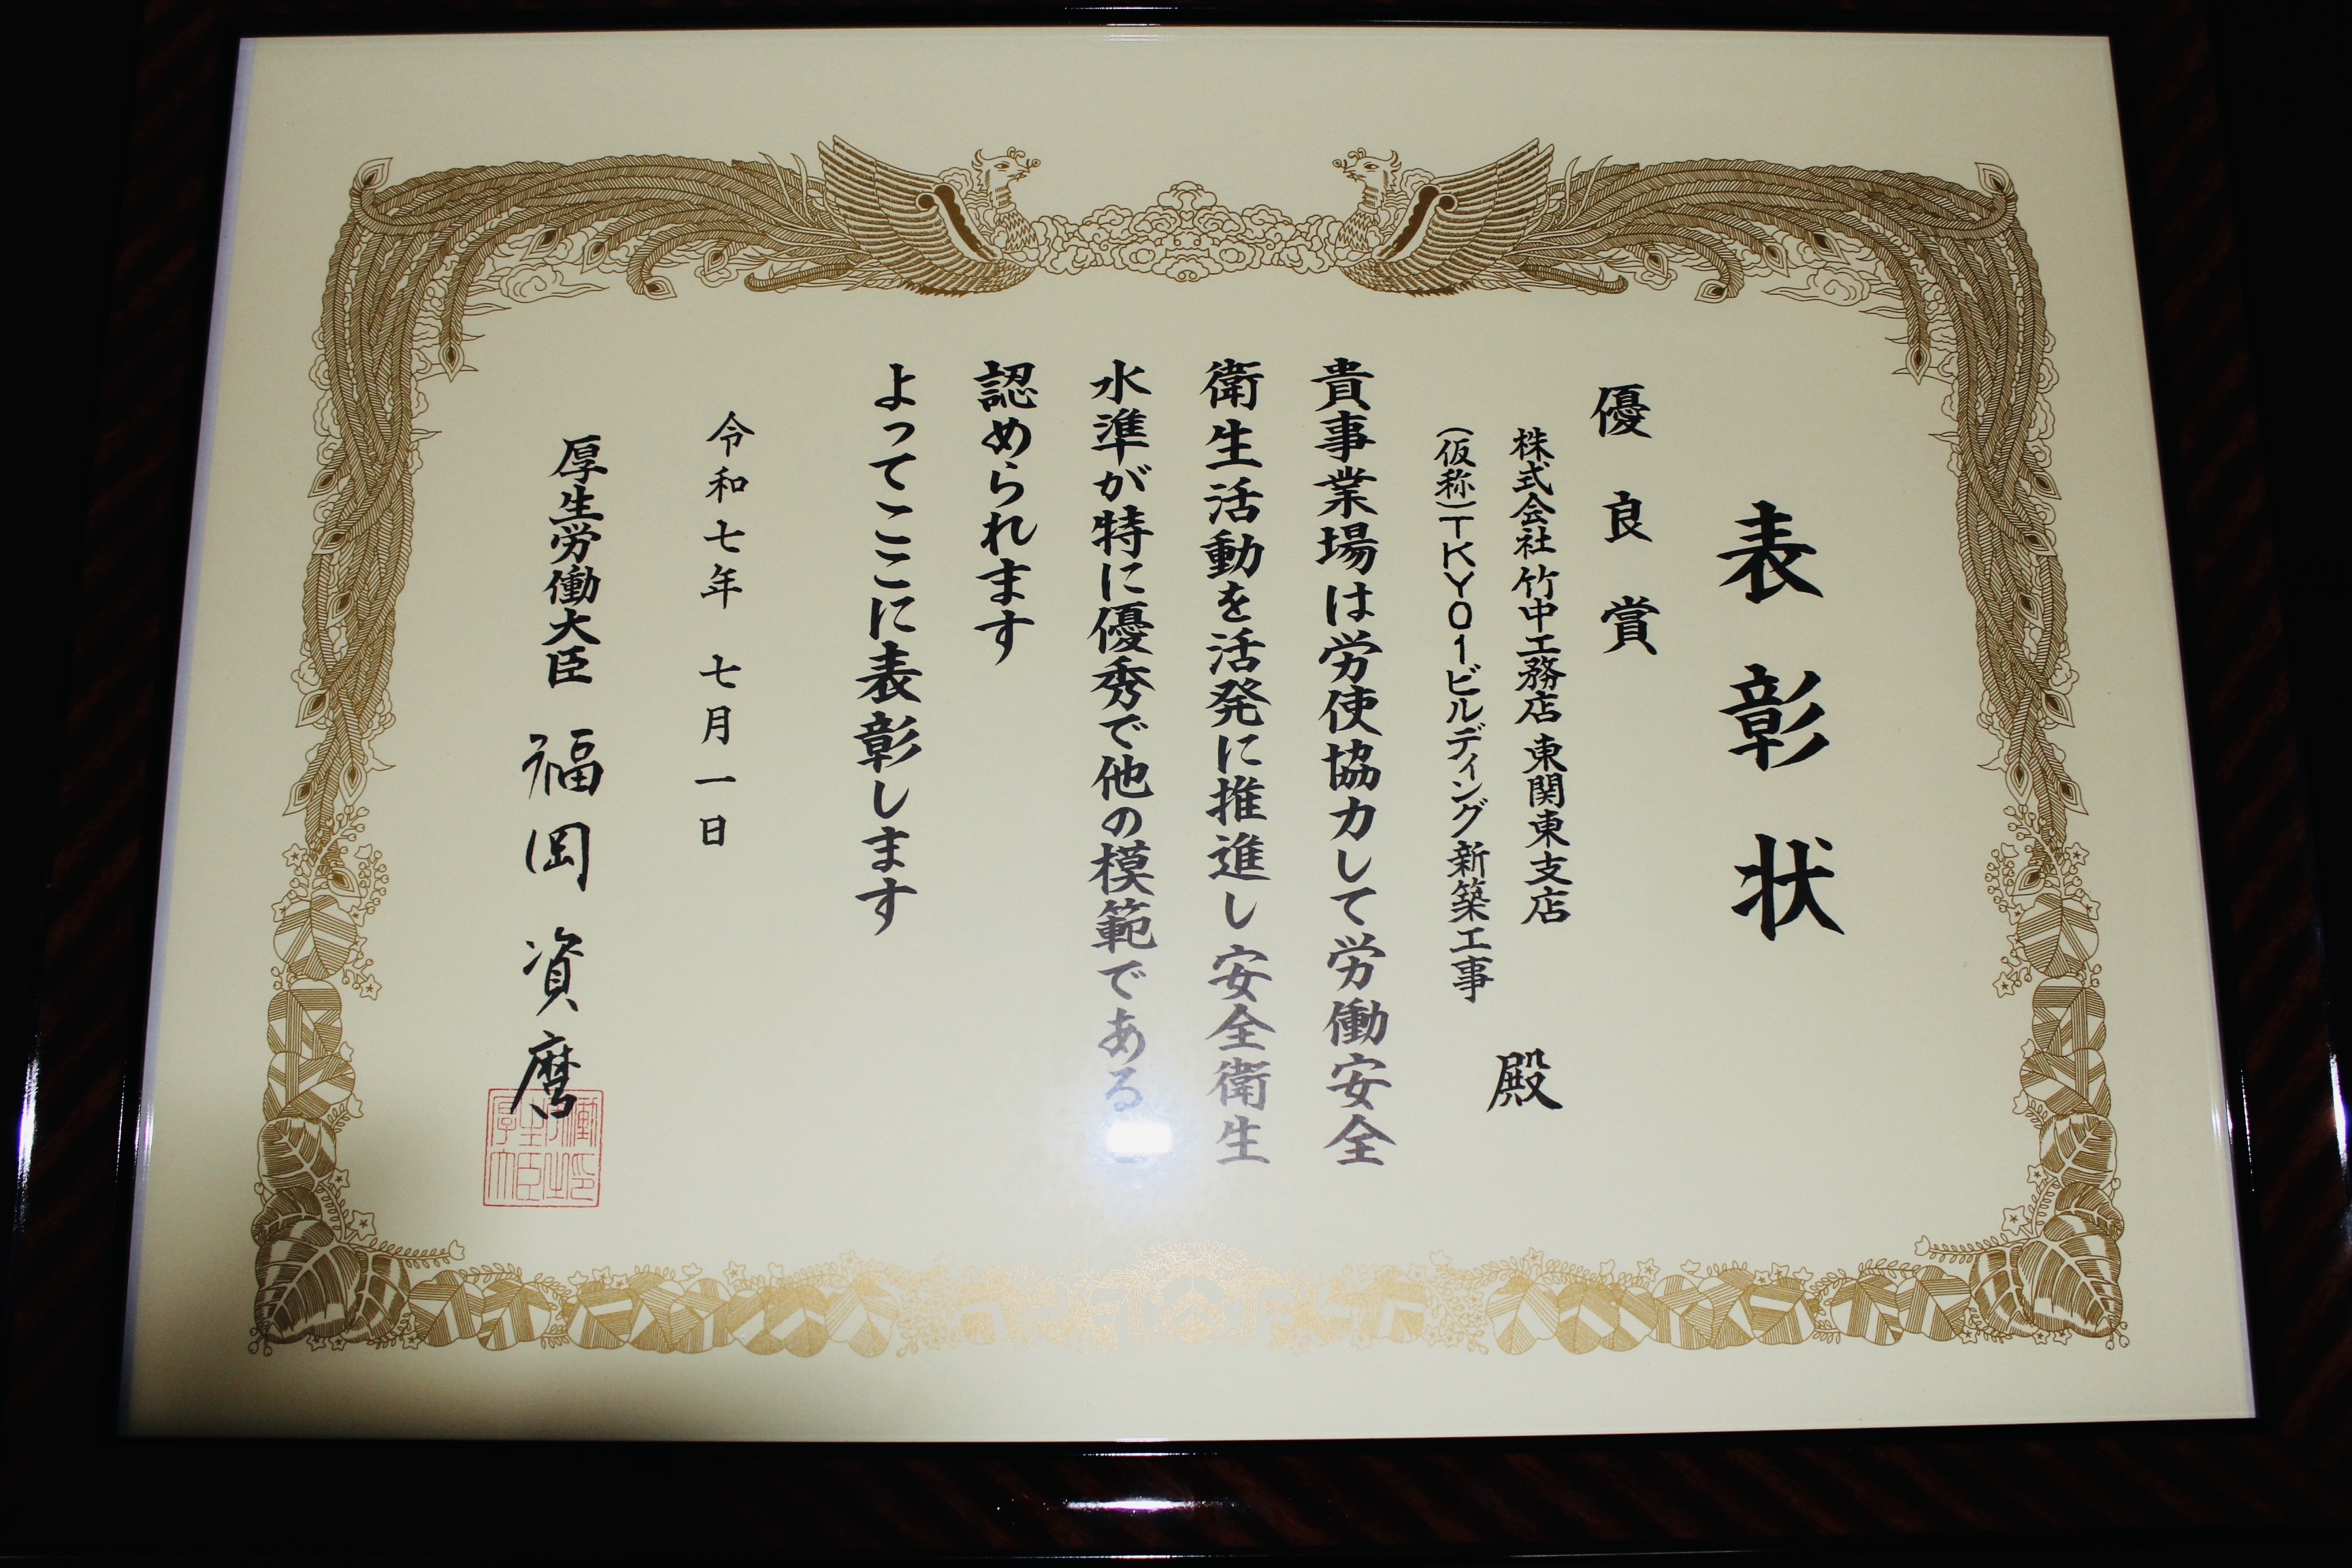 表彰状
優良賞
株式会社 竹中工務店 東関東支店
(仮称)TKY01ビルディング新築工事
殿
貴事業場は労使協力して労働安全
衛生活動を活発に推進し安全衛生
水準が特に優秀で他の模範である
認められます
よってここに表彰します
令和七年 七月一日
厚生労働大臣 福岡資麿